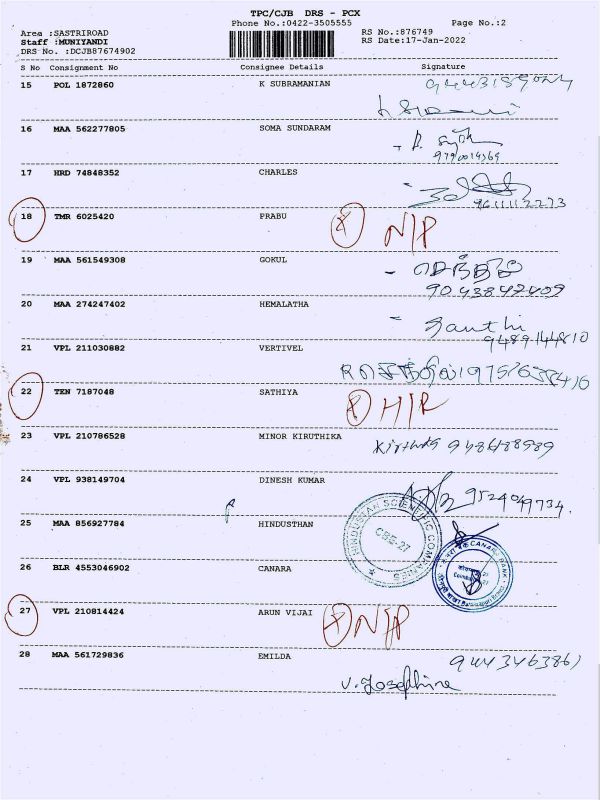 TPC/CJB DRS - PCX
Phone No.:0422-3505555 Page No.:2
Area :SASTRIROAD RS No.:876749
Staff :MUNIYANDI RS Date:17-Jan-2022
DRS No. :DCJB87674902
S No Consignment No Consignee Details Signature
15 POL 1872860 K SUBRAMANIAN
16 MAA 562277805 SOMA SUNDARAM
9790014369
17 HRD 74848352 CHARLES
9611112273
18 TMR 6025420 PRABU N/P
19 MAA 561549308 GOKUL
9043847409
20 MAA 274247402 HEMALATHA
Santhi
9489144810
21 VPL 211030882 VERTIVEL
22 TEN 7187048 SATHIYA H/R
23 VPL 210786528 MINOR KIRUTHIKA
24 VPL 938149704 DINESH KUMAR 9524049734.
25 MAA 856927784 HINDUSTHAN
HINDUSTHAN SCIENTIFIC COMPANY
CBE-27
26 BLR 4553046902 CANARA
CANARA BANK
27 VPL 210814424 ARUN VIJAI N/P
28 MAA 561729836 EMILDA 9443463861
V. Josephine